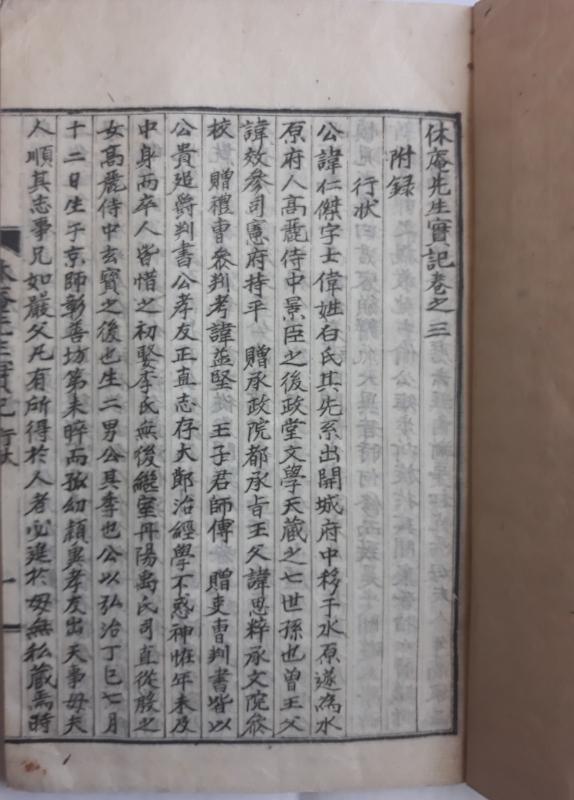 休庵先生實記卷之三
附録
行状
公諱仁傑字士偉姓白氏其先系出開城府中移于水原遂為水
原府人高麗侍中景臣之後政堂文學天蔵之七世孫也曾王父
諱效參司憲府持平 贈承政院都承旨王父諱思粹承文院
校 贈禮曹參判考諱益堅 王子君師傅 贈吏曹判書皆以
公貴追爵判書公孝友正直志存大 治經學不惑神恠年未及
中身而卒人皆惜之初娶李氏無後繼室丹陽禹氏司直從殷之
女高麗侍中玄寳之後也生二男公其季也公以弘治丁巳七月
十二日生于京師彰善坊第未晬而孤幼頴異孝友出天事毋夫
人順其志事兄如嚴父凡有所得於人者必進於毋無私蔵焉時
休庵先生實記 行状 一